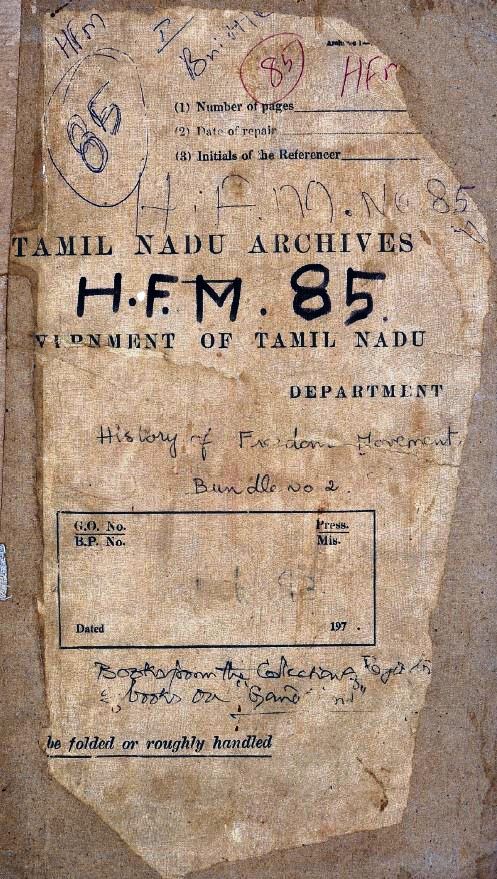 HFM
I
Brittle
85
85
HFM
(1) Number of pages
(2) Date of repair
(3) Initials of the Referencer
H.F.M. No 85
TAMIL NADU ARCHIVES
H.F.M. 85.
OF TAMIL NADU
DEPARTMENT
History of Freedom Movement
Bundle no 2.
G.O. No.
Press.
B.P. No.
Mis.
Dated
197 .
Books from the Collections
books on
be folded or roughly handled